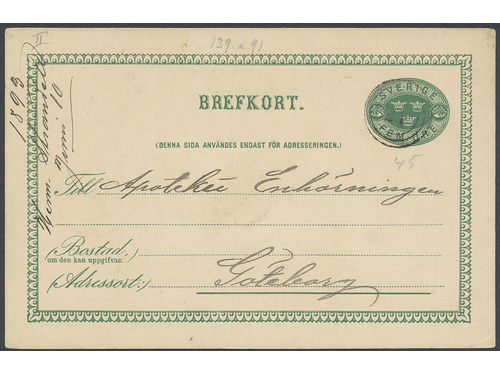 139 x 91
II
1893
SVERIGE
FEM ÖRE
BREFKORT.
(DENNA SIDA ANVÄNDES ENDAST FÖR ADRESSERINGEN.)
45
Till Apoteket Enhörningen
(Bostad,
om den kan uppgifvas:)
(Adressort:) Göteborg